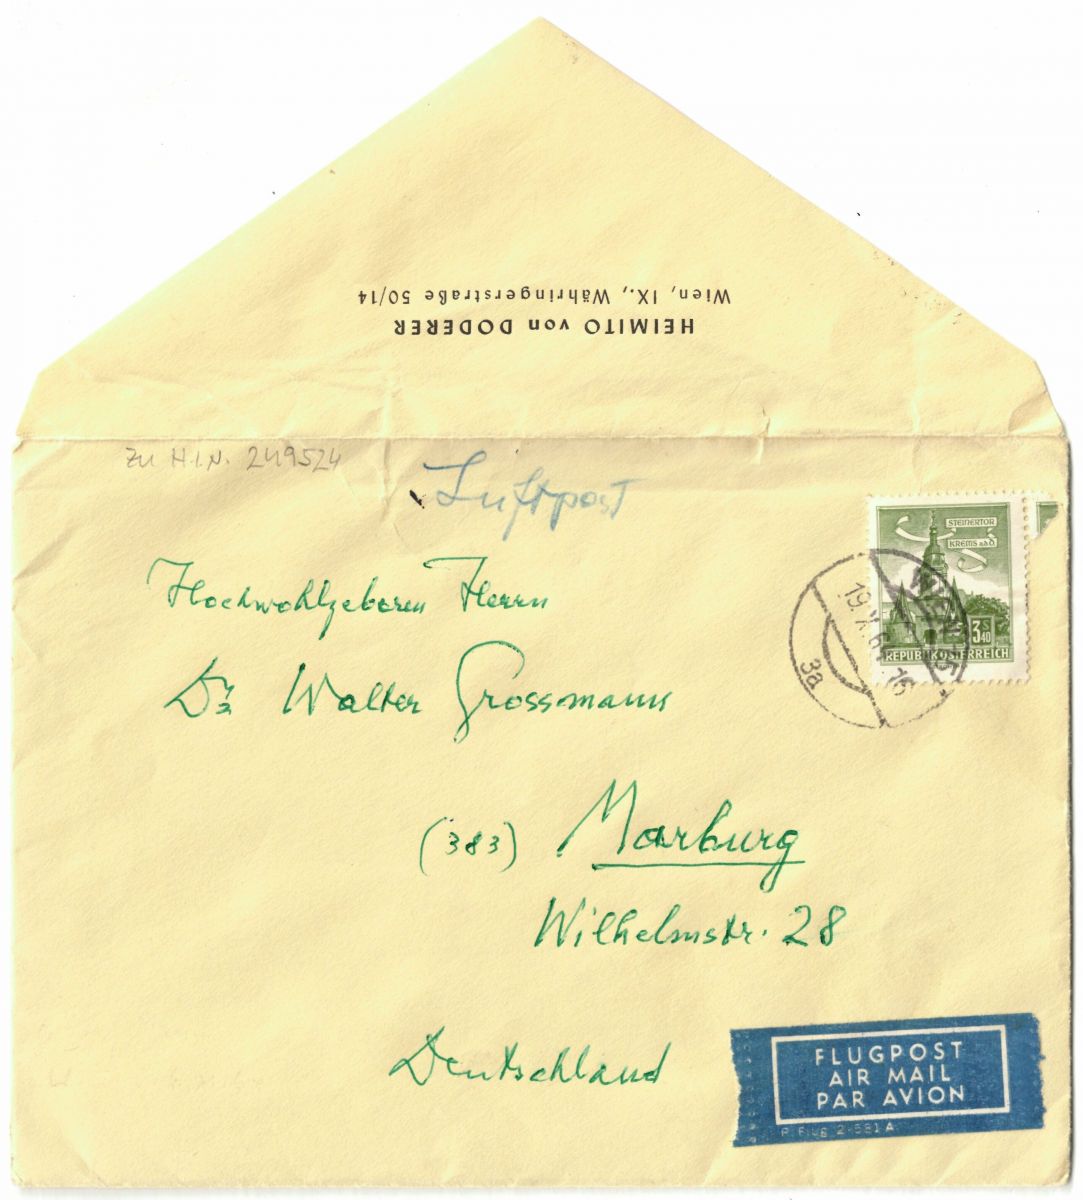 HEIMITO von DODERER
Wien, IX., Währingerstraße 50/14
Zu H.I.N. 249524
Luftpost
STEINERTOR
KREMS a.d.D.
3 S 40
REPUBLIK ÖSTERREICH
WIEN
19.X.64
16
3a
Hochwohlgeboren Herrn
Dr Walter Grossmann
(383) Marburg
Wilhelmstr. 28
Deutschland
FLUGPOST
AIR MAIL
PAR AVION